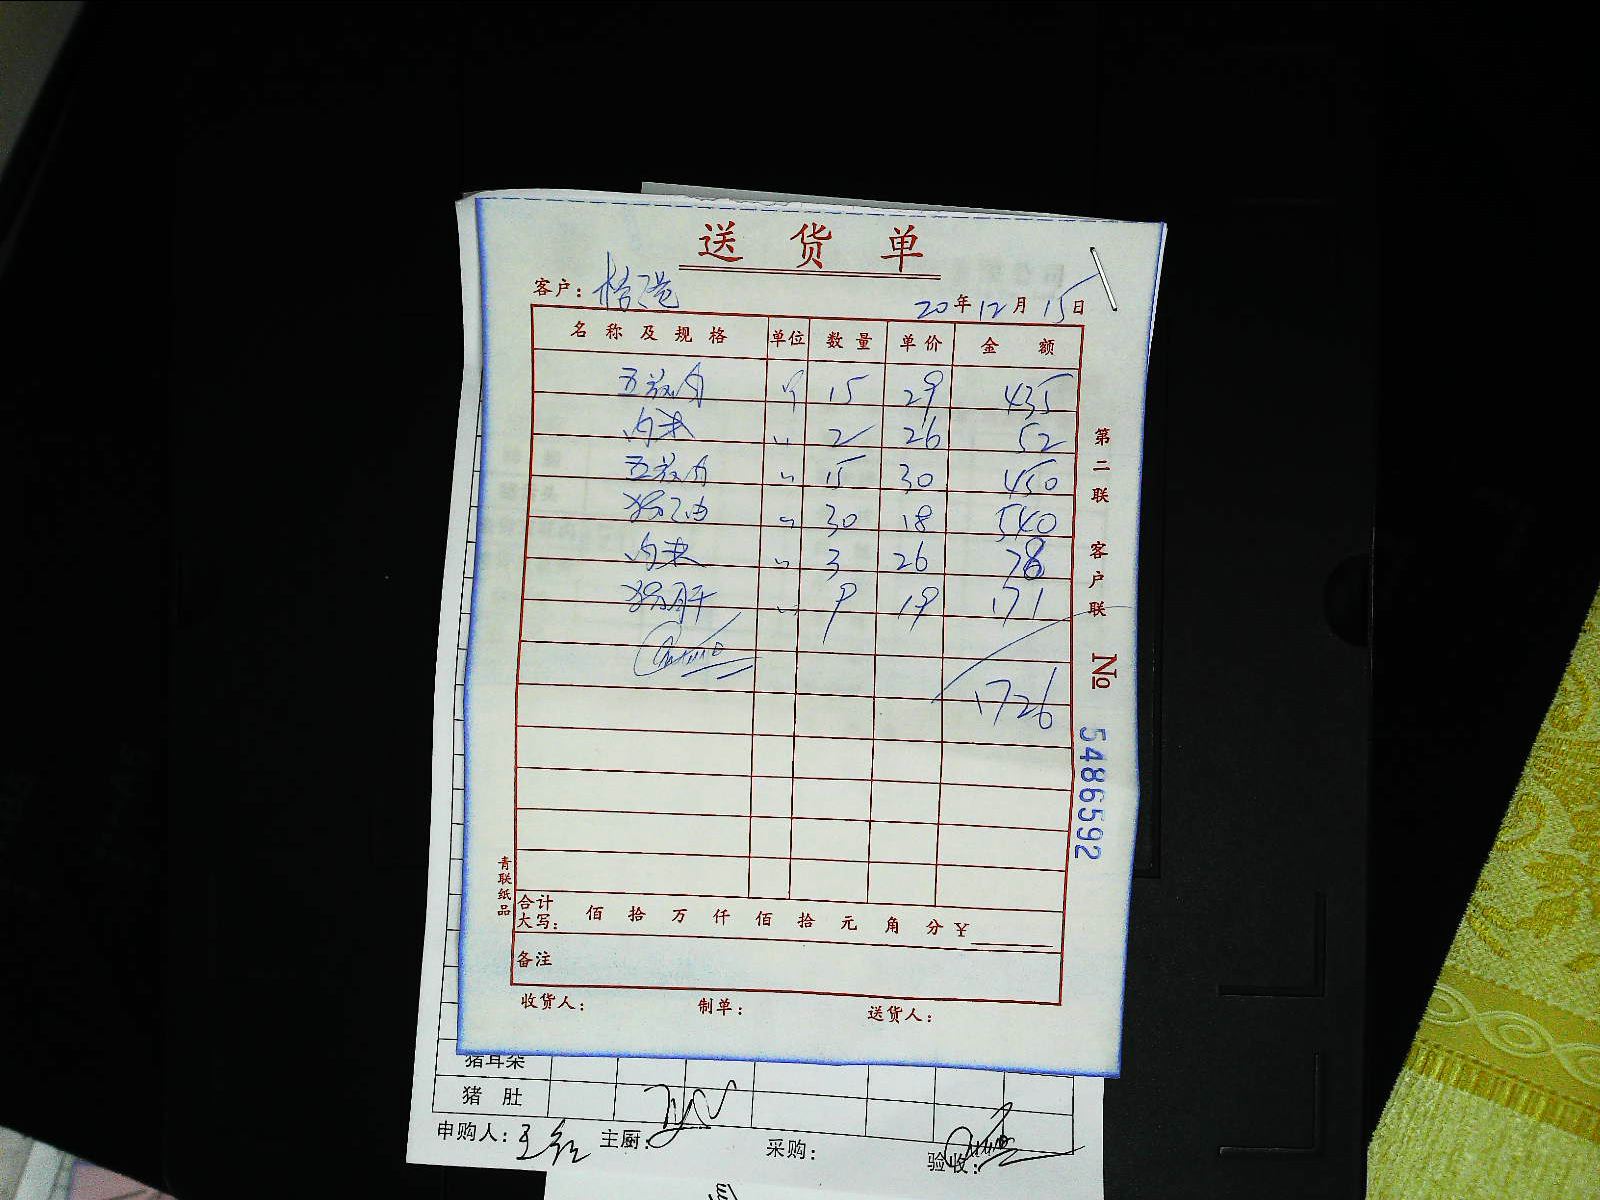 送货单
客户：
20年12月15日
名称及规格 单位 数量 单价 金额
五花肉 斤 15 29 435
肉末 〃 2 26 52
五花肉 〃 15 30 450
猪油 〃 30 18 540
肉末 〃 3 26 78
猪肝 〃 9 19 171
1726
合计
大写： 佰 拾 万 仟 佰 拾 元 角 分 ¥
备注
收货人： 制单： 送货人：
第二联 客户联 № 5486592
青联纸品
猪耳朵
猪肚
申购人： 主厨： 采购： 验收：